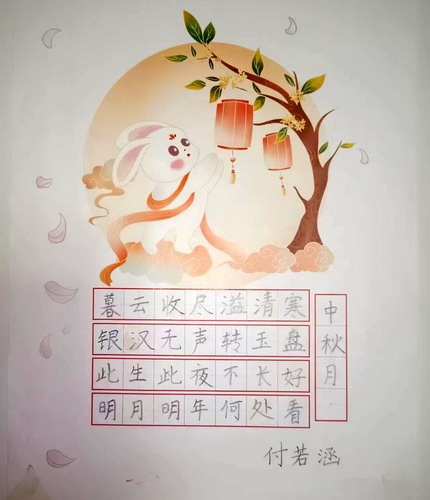 中秋月
暮云收尽溢清寒
银汉无声转玉盘
此生此夜不长好
明月明年何处看
付若涵